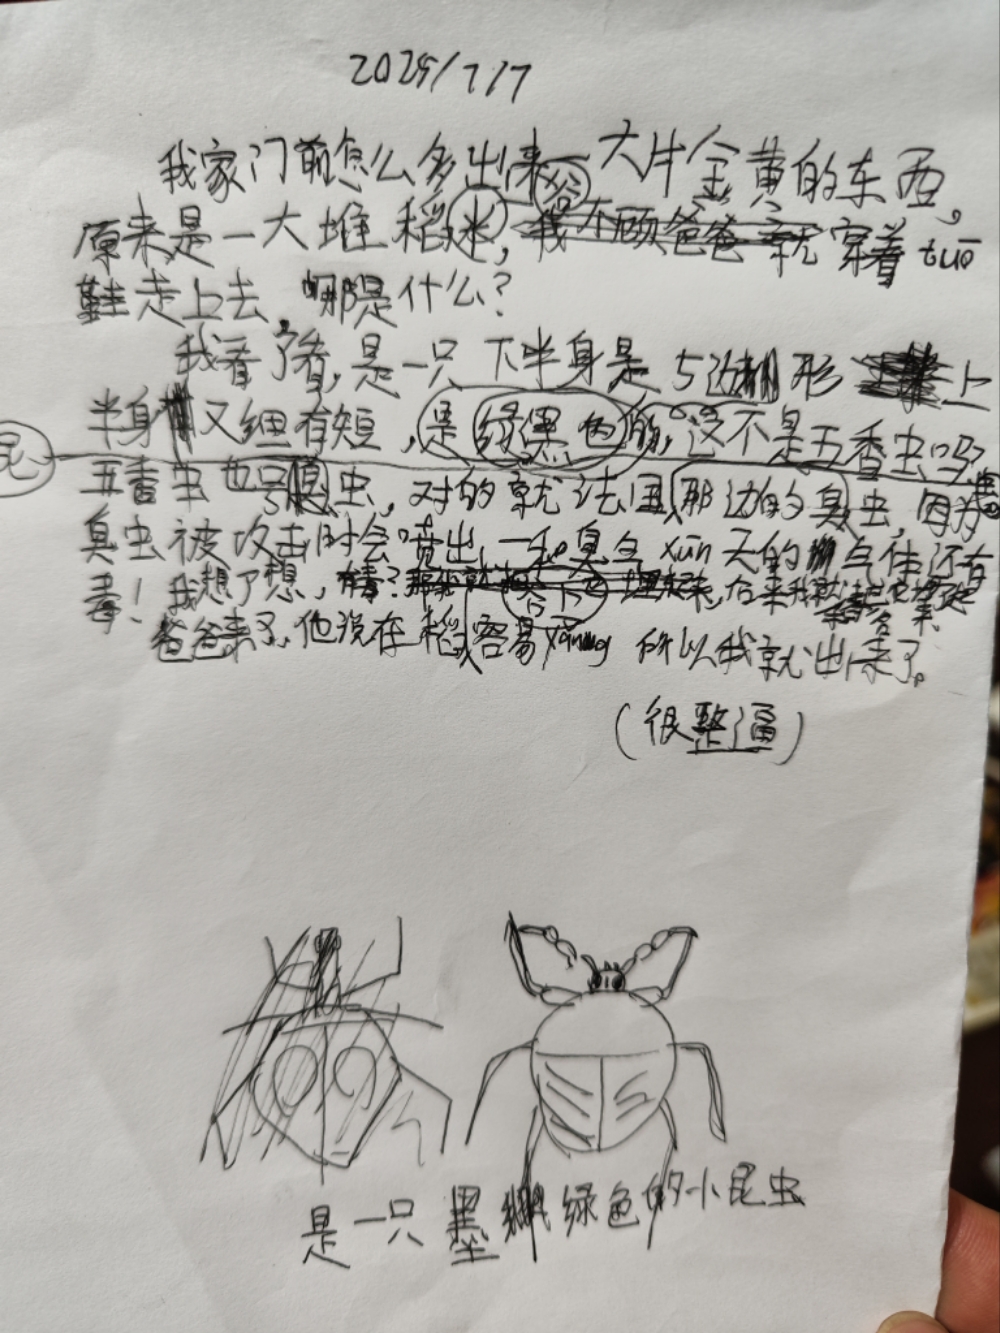 2025/7/7
我家门前怎么多出来一大片金黄的东西,
谷
原来是一大堆稻米,我不顾爸爸就穿着tuō
鞋走上去,哪是什么?
我看了看,是一只下半身是5边形上
半身又细有短,是绿黑色的,这不是五香虫吗
昆
五香虫也只是臭虫,对的就法国那边的臭虫,因为
臭虫被攻击时会喷出一种臭气xūn天的气住还有
毒!我想了想,后来我就
爸爸来了,他说在稻容易yǎng所以我就出来了。
(很整逼)
是一只墨绿色的小昆虫